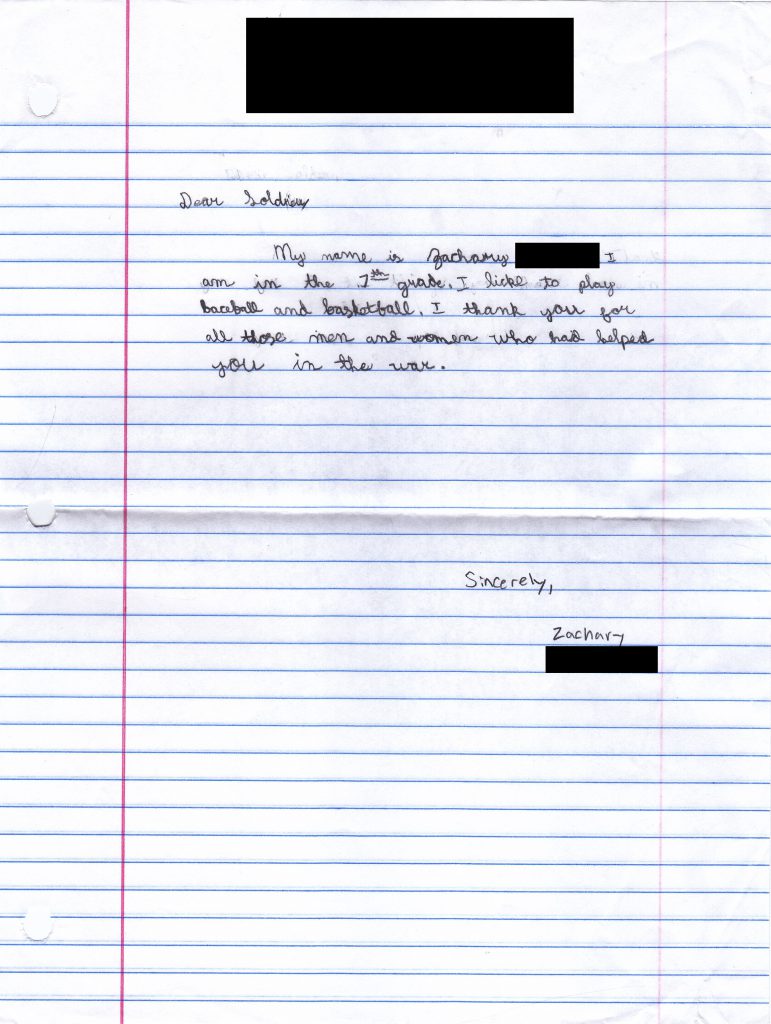 Dear Soldier,
My name is Zachary I
am in the 7th grade. I licke to play
baceball and basketball. I thank you for
all those men and women who had helped
you in the war.
Sincerely,
Zachary